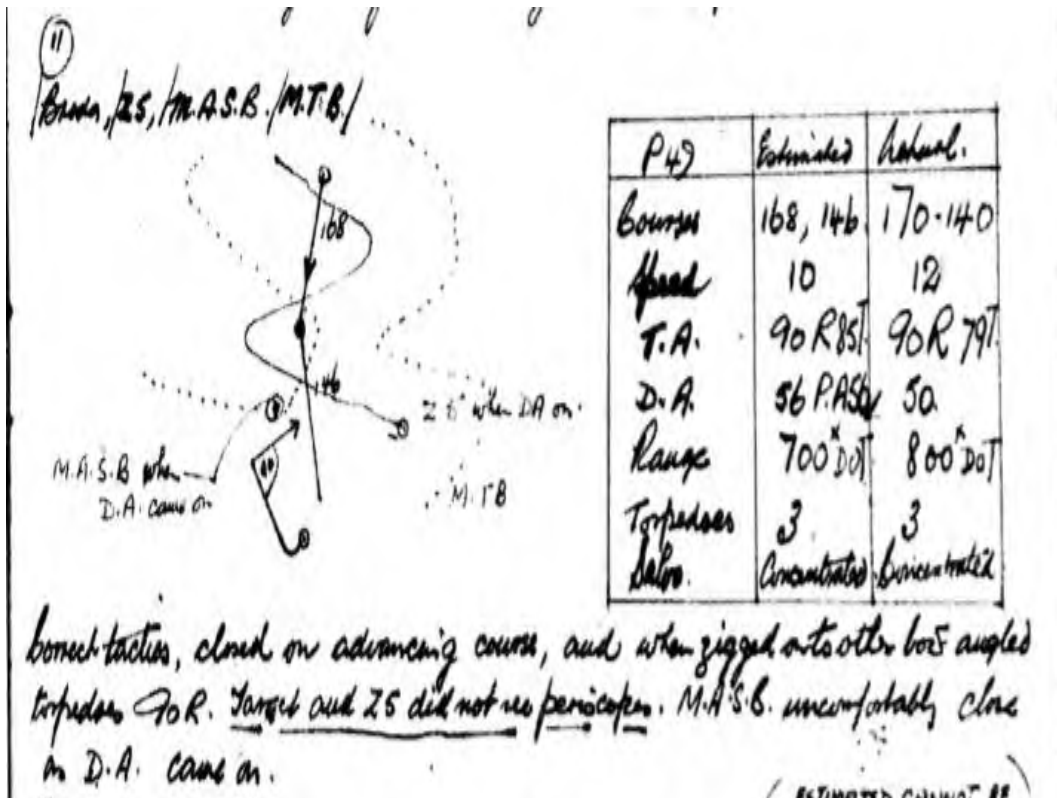 11
/Breda, /Z5, /M.A.S.B. /M.T.B./
168
146
Z 5 when DA on.
M.A.S.B when
D.A. came on
90
M.T B
P49 Estimated Actual.
Courses 168, 146. 170-140
Speed 10 12
T.A. 90 R 85T. 90 R 79T.
D.A. 56 50.
Range 700x DOT 800x DOT
Torpedoes 3 3
Salvo. Concentrated. Concentrated
Correct tactics, closed on advancing course, and when zigged onto other bow angled
torpedoes 90R. Target and Z5 did not see periscopes. M.A.S.B. uncomfortably close
as D.A. came on.
(ESTIMATED CANNOT BE)